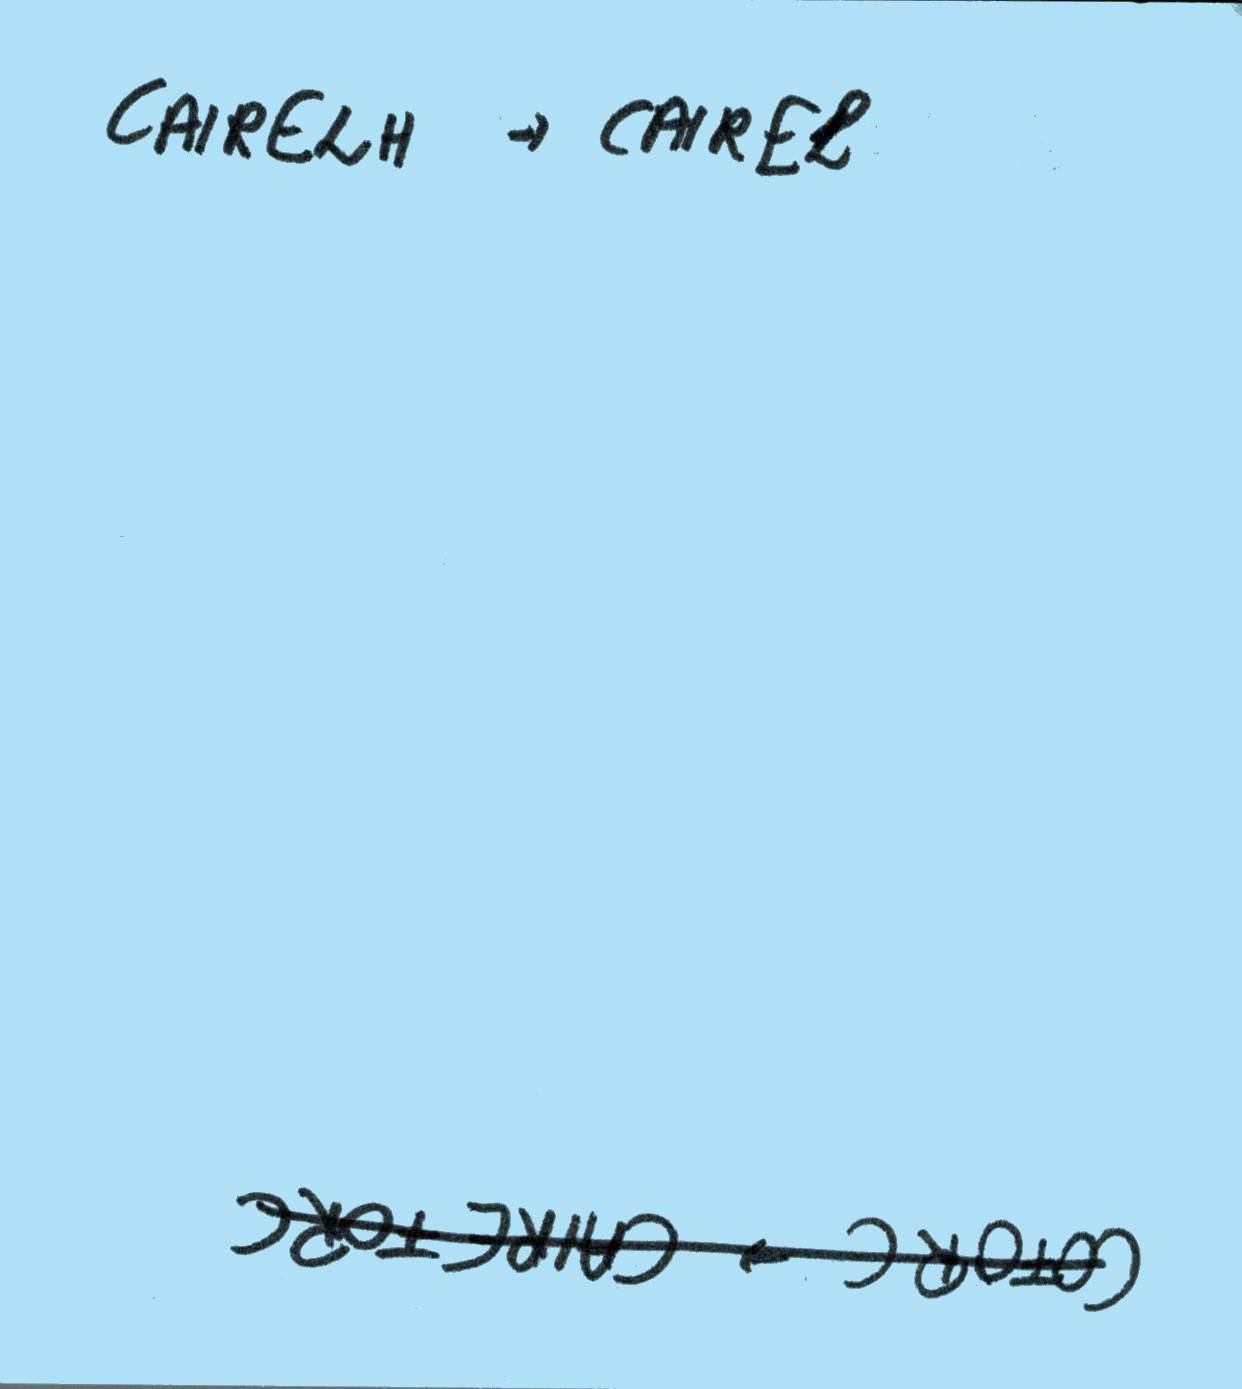 CAIRELH → CAIREL
COTORC → CAIRE TORC